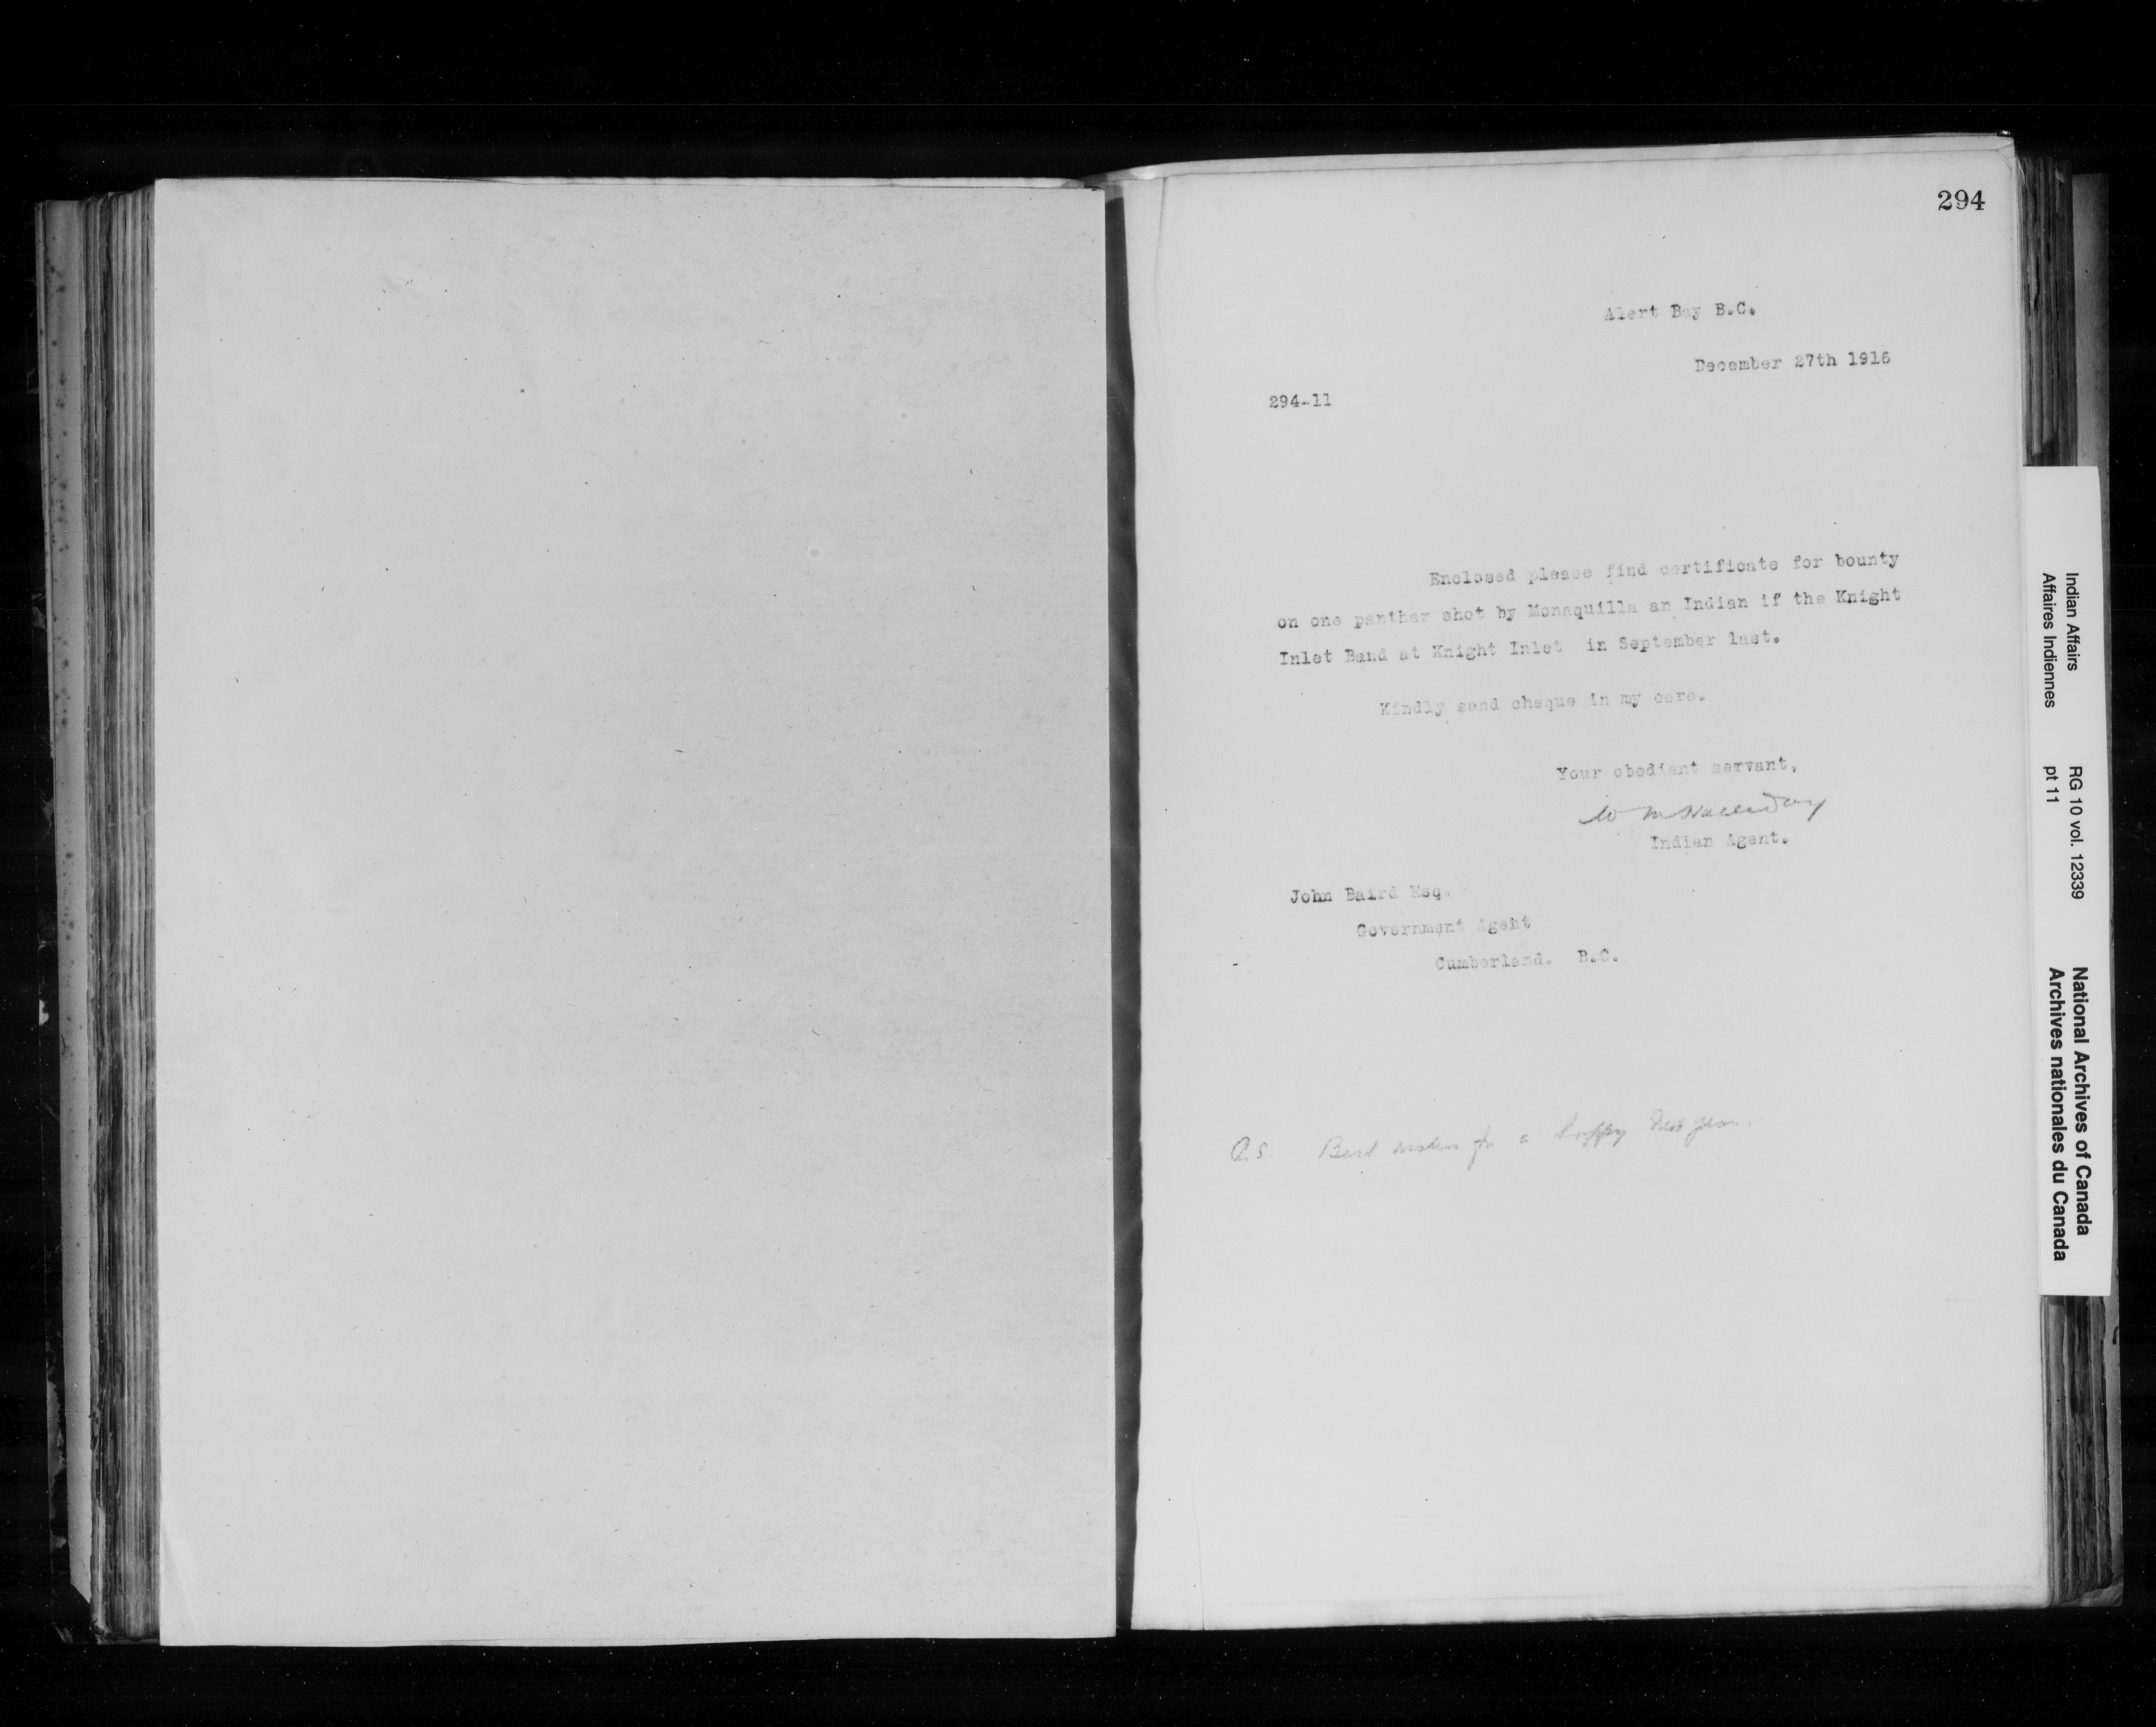 294
Alert Bay B.C.
December 27th 1916
294-11
Enclosed please find certificate for bounty
on one panther shot by Monaquilla an Indian if the Knight
Inlet Band at Knight Inlet in September last.
Kindly send cheque in my care.
Your obedient servant,
W M Halliday
Indian Agent.
John Baird Esq.
Government Agent
Cumberland. B.C.
P.S. Best wishes for a happy New year.
Indian Affairs RG 10 vol. 12339 National Archives of Canada
Affaires Indiennes pt 11 Archives nationales du Canada